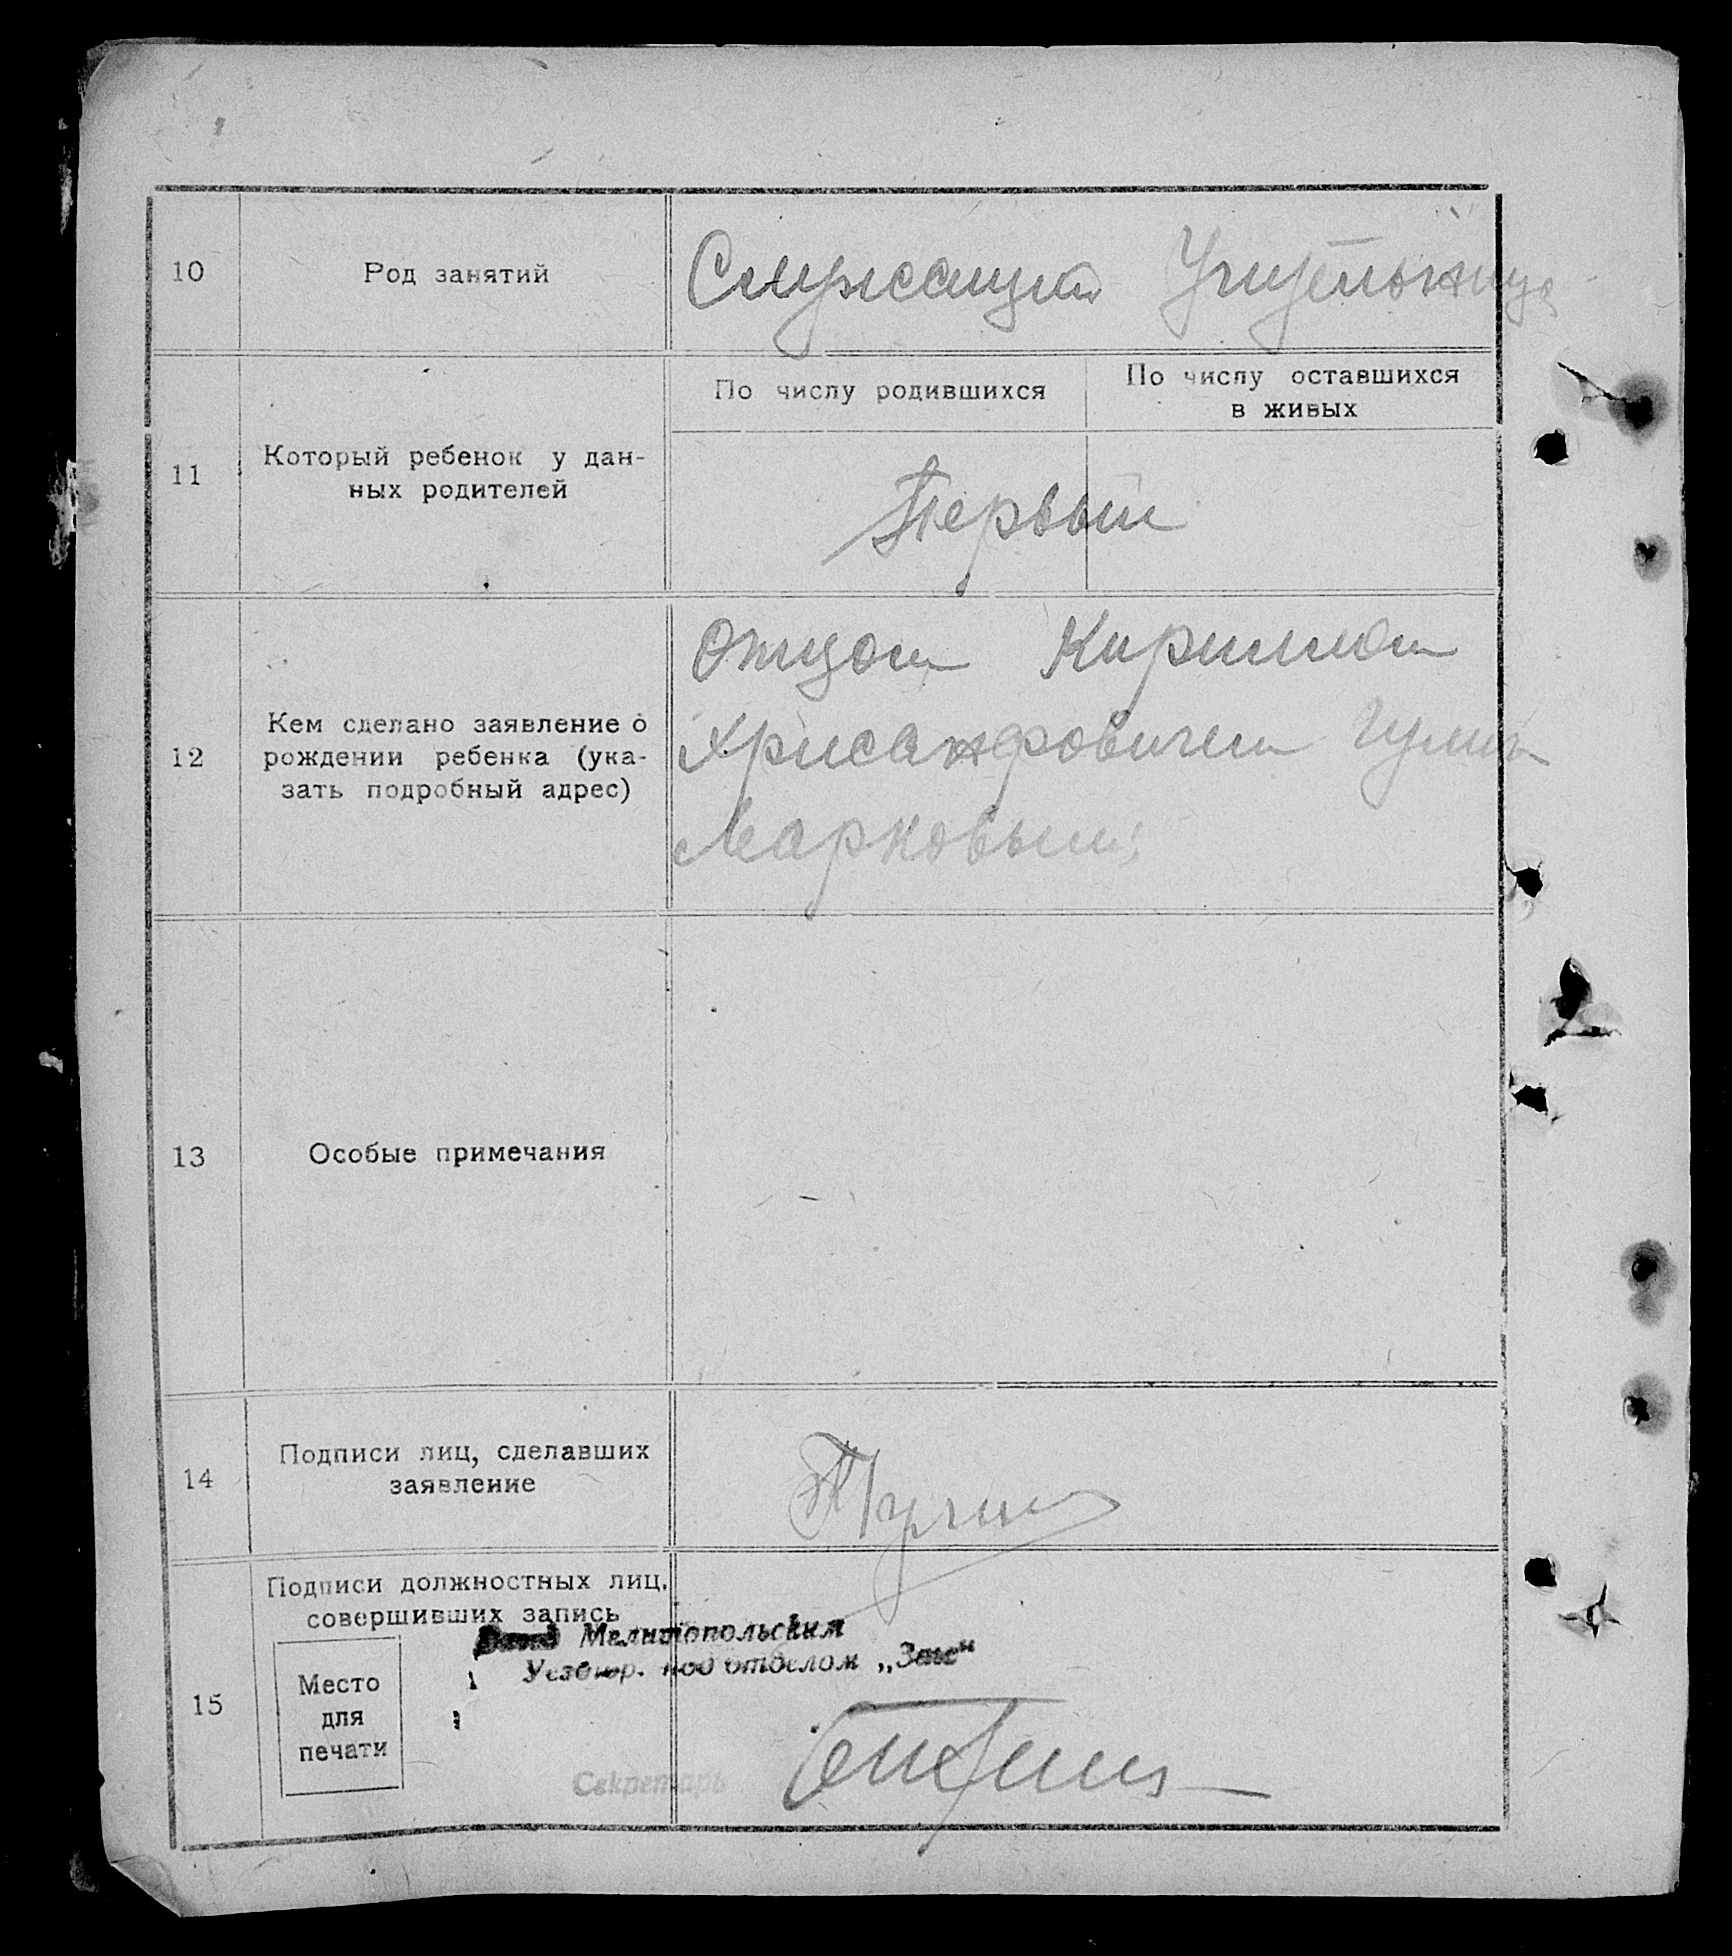 10 Род занятий Служащий Учительница
По числу родившихся По числу оставшихся
в живых
11 Который ребенок у дан-
ных родителей
Первый
12 Кем сделано заявление о
рождении ребенка (ука-
зать подробный адрес)
Отцом Кириллом
Хрисанфовичем
Марковым
13 Особые примечания
14 Подписи лиц, сделавших
заявление
15 Подписи должностных лиц,
совершивших запись
Мелитопольским
под отделом „Загс“
Место
для
печати
Секретарь